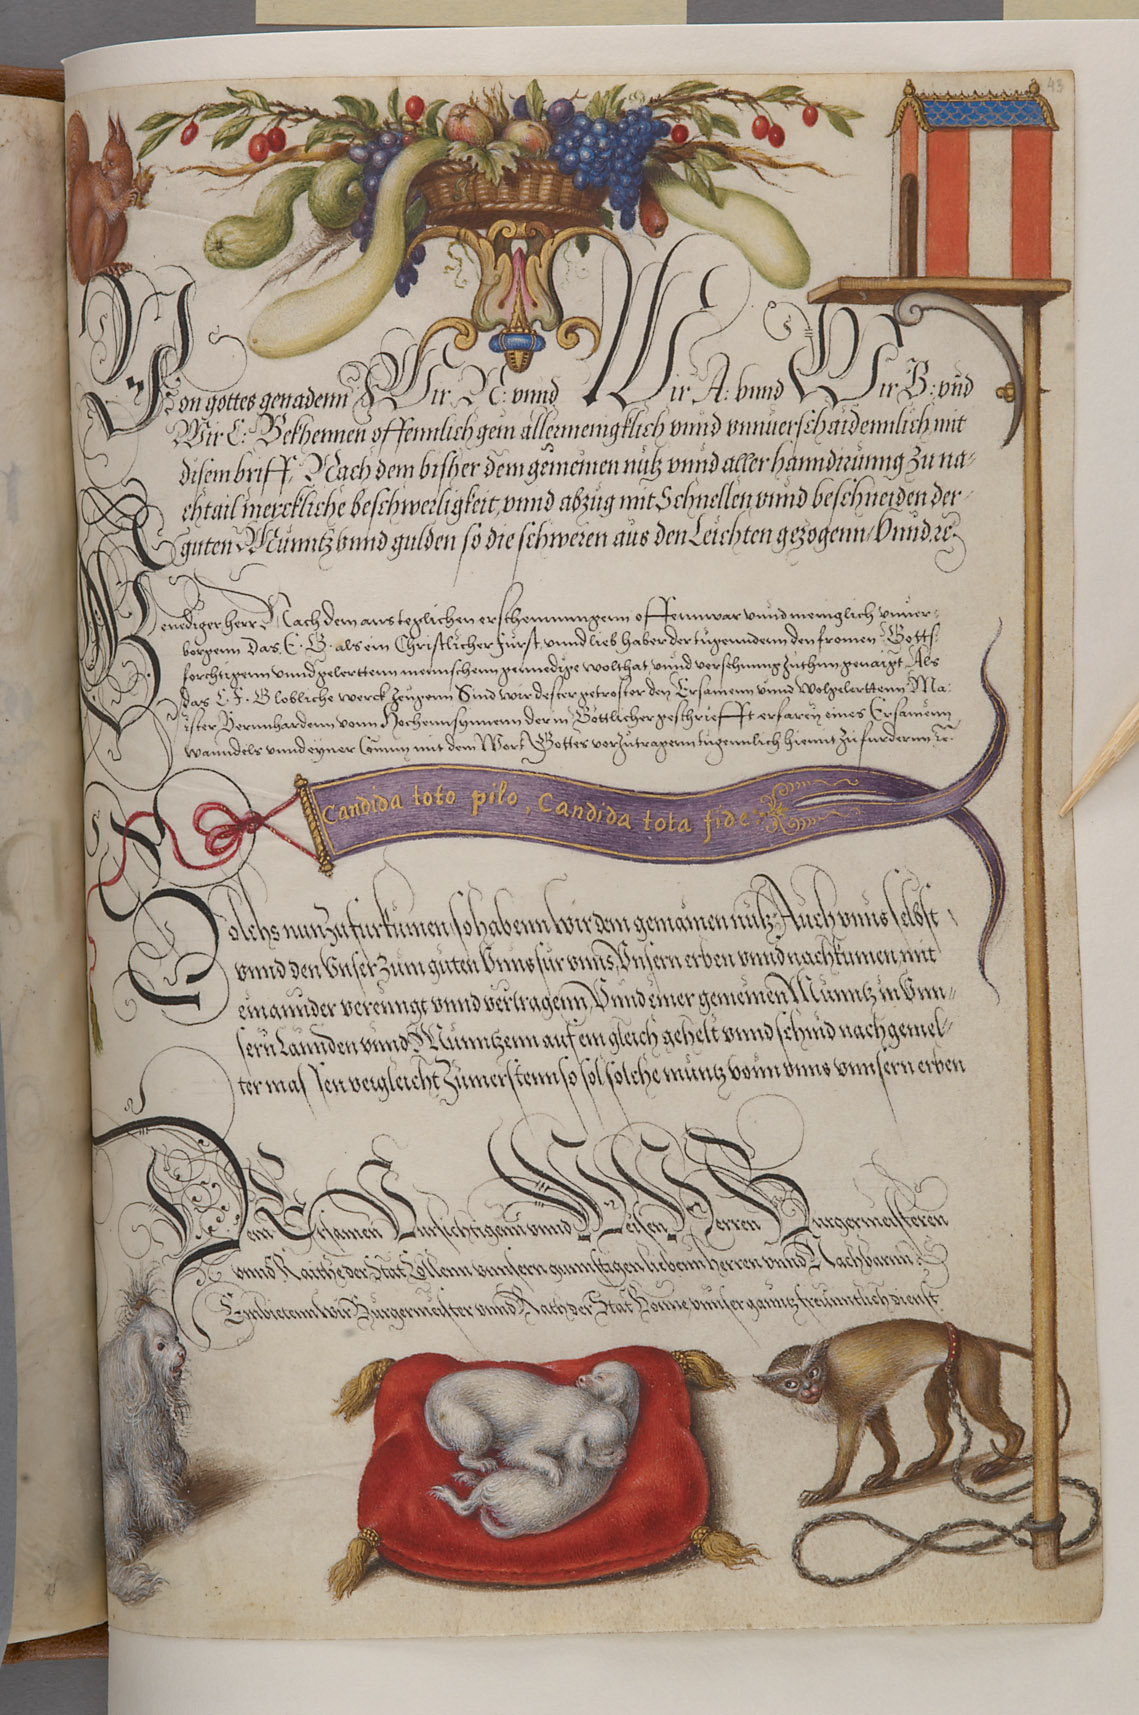 43
Von gottes genadenn Wir N: vnnd Wir A: vnnd Wir B: vnd
Wir C: Bekhennen offennlich gem allermenigklich vnnd vnnuerschaidennlich mit
disem briff. Nach dem bisher dem gemeinen nutz vnnd aller hanndtirung zu na-
chtail merckliche beschwerligkeit, vnnd abzug mit Schnellen vnnd beschneiden der
guten Munntz vnnd gulden so die schweren aus den Leichten gezogenn Vnnd. re.
Genediger herr Nach dem aus teglichen erschennungenn offennwar vnnd meniglich vnuer-
borgenn Das. E. G. als ein Christlicher Furst, vnnd lieb haber der tugenndenn den fromen Gotts
forchtigenn vnnd gelerttenn mennschenn genedige wolthat vnnd versehnung zuthun genaigt Als
das E. F. G lobliche werck zeugenn Sind wir dester getroster den Ersamenn vnnd wolgelerttenn Ma-
ister Bernnhardenn vonn Hochennsynnenn der in Gottlicher geschriefft erfaren eines Ersamenn
wanndels vnnd eyner Comun mit dem Wort Gottes vorzutragenn tugennlich hiemit zu furdernn
Candida toto pilo, Candida tota fide
Solchs nun zufurkumen so habenn wir dem gemainen nutz Auch vnns selbst
vnnd den Vnser zum guten Vnns fur vnns, Vnsern erben vnnd nachkumen, mit
einannder verenngt vnnd vertragenn, Vnnd einer gemeinen Munntz in Vnn-
sern Lannden vnnd Munntzenn auf ein gleich gehelt vnnd schrid nach gemel-
ter massen vergleicht Zumerstenn so sol solche muntz vonn vnns vnnsern erben
Den Ersamen Fursichtigenn vnnd Weisen Herren Burgermeisteren
vnnd Raithe der Stat Ellenn vnnsern gunnstigen liebenn herren vnnd Nachbarnn
Embietenn wir Burgermeister vnnd Rath der Stat Bonne vnnser ganntz freunntlich dienst